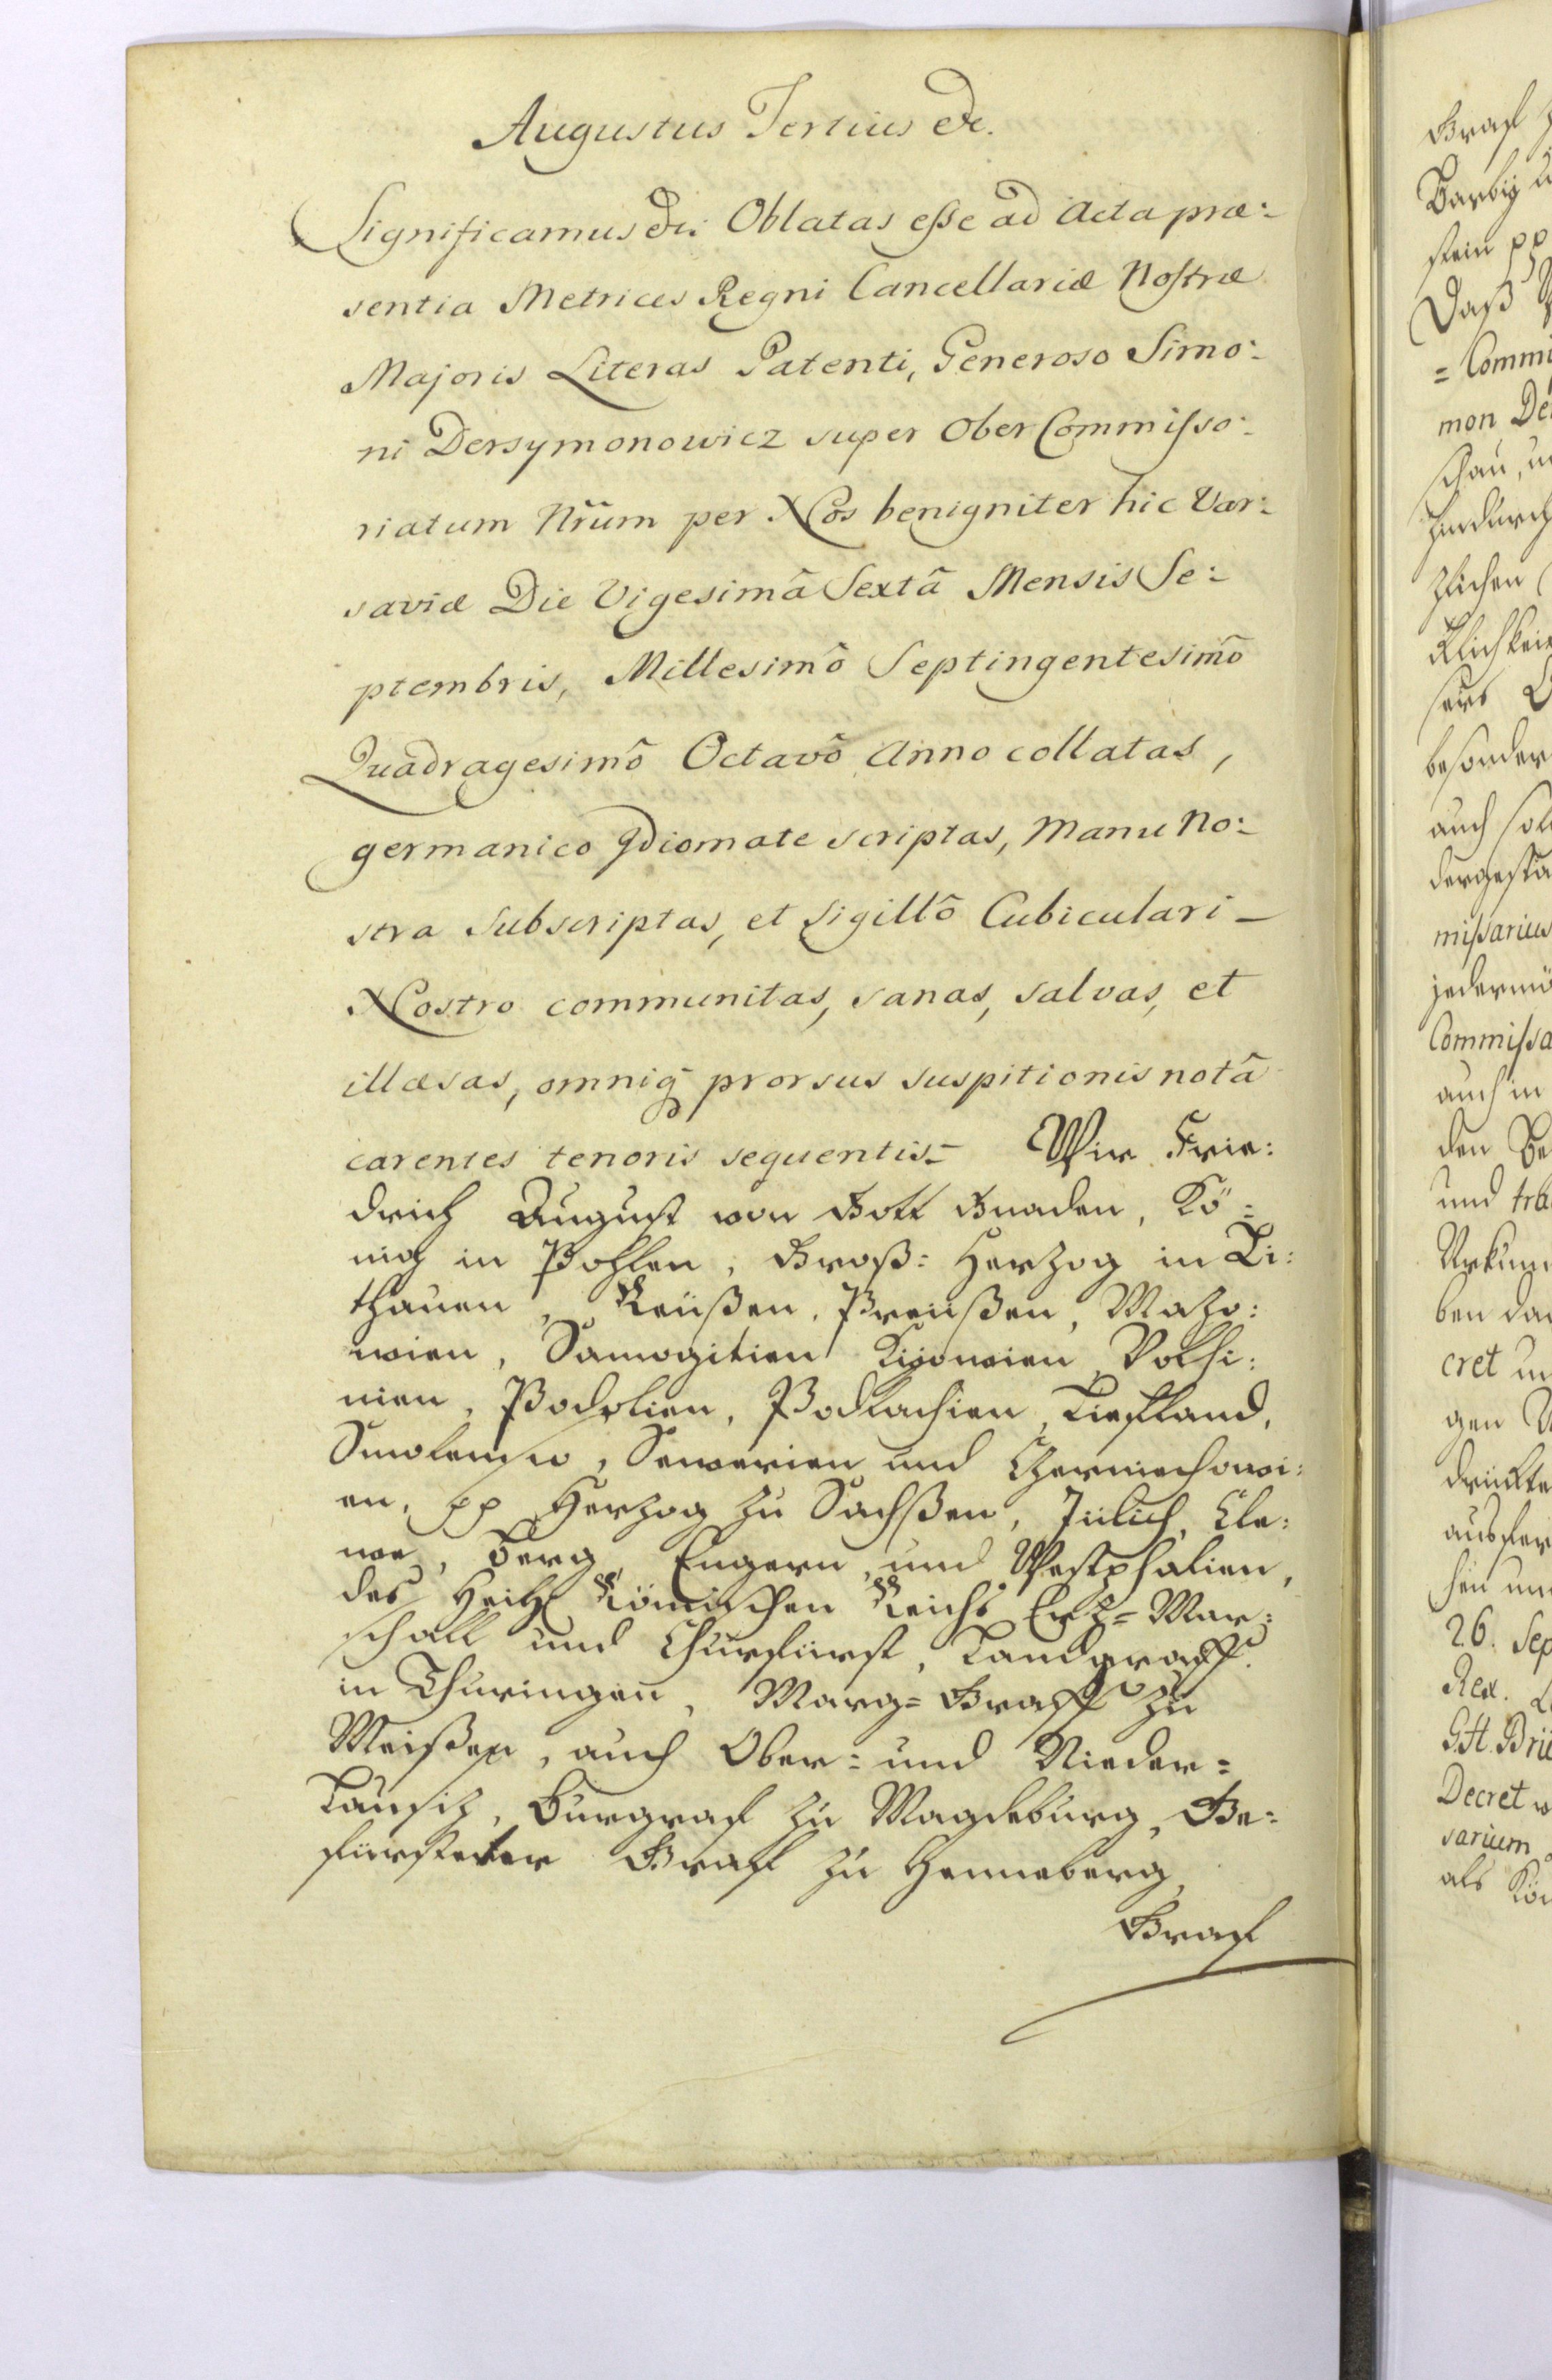 Augustus Tertius &c.
Significamus &c: Oblatas esse ad Acta præ:
sentia Metrices Regni Cancellariæ Nostræ
Majoris Literas Patenti, Generoso Simo:
ni Dersymonowicz super Ober Commissa:
riatum Nrūm per Nos benigniter hic Var:
saviæ Die Vigesimâ Sextâ Mensis Se:
ptembris, Millesimô Septingentesimô
Quadragesimô Octavô Anno collatas,
germanico Idiomate scriptas, Manu No:
stra Subscriptas, et Sigillô Cubiculari –
Nostro communitas, sanas, salvas, et
illæsas, omniq prorsus suspitionis notâ
carentes tenoris sequentis – Wir Frie:
drich August von Gott Gnaden, Kö:
nig in Pohlen, Groß: Herzog in Li:
thauen, Reüßen, Preüßen, Mazo:
wien, Samogitien Kijowien, Volhi:
nien, Podolien, Podlachien, Liefland,
Smolensko, Severien und Czerniechowi:
en, pp Herzog zu Sachßen, Jülich, Cle:
ve, Berg, Engern, und Westphalien,
des Heil: Römischen Reichs Ertz=Mar:
schall und Churfürst, Landgraff
in Thuringen, Marg=Graff zu
Meißen, auch Ober= und Nieder=
Lausitz, Burgraf zu Magdeburg, Ge:
fürsteter Graf zu Henneberg,
Graf
Graf
Barbÿ
stein pp
Daß
= Commi
mon De
schau, u
hindurch
zlichen
klichkei
sers
besonder
auch sol
dergesta
missarius
jedermä
Commissa
auch in
den Be
und tra
Urkun
ben da
cret un
gen
drückte
ausfer
hen un
26. Sep
Rex. L
GH. Brü
Decret
sarium
als Kön